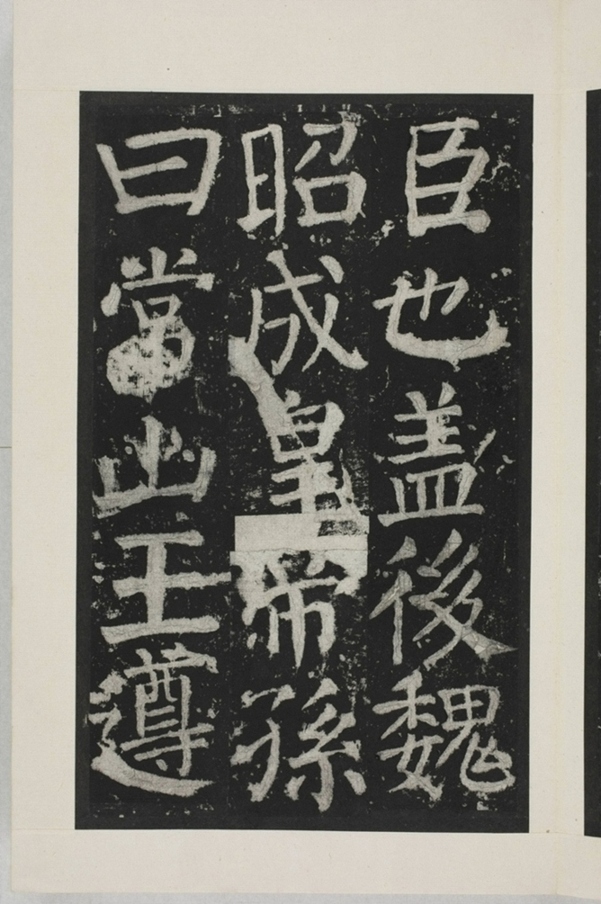 臣也盖後魏
昭成皇帝孫
曰常山王遵